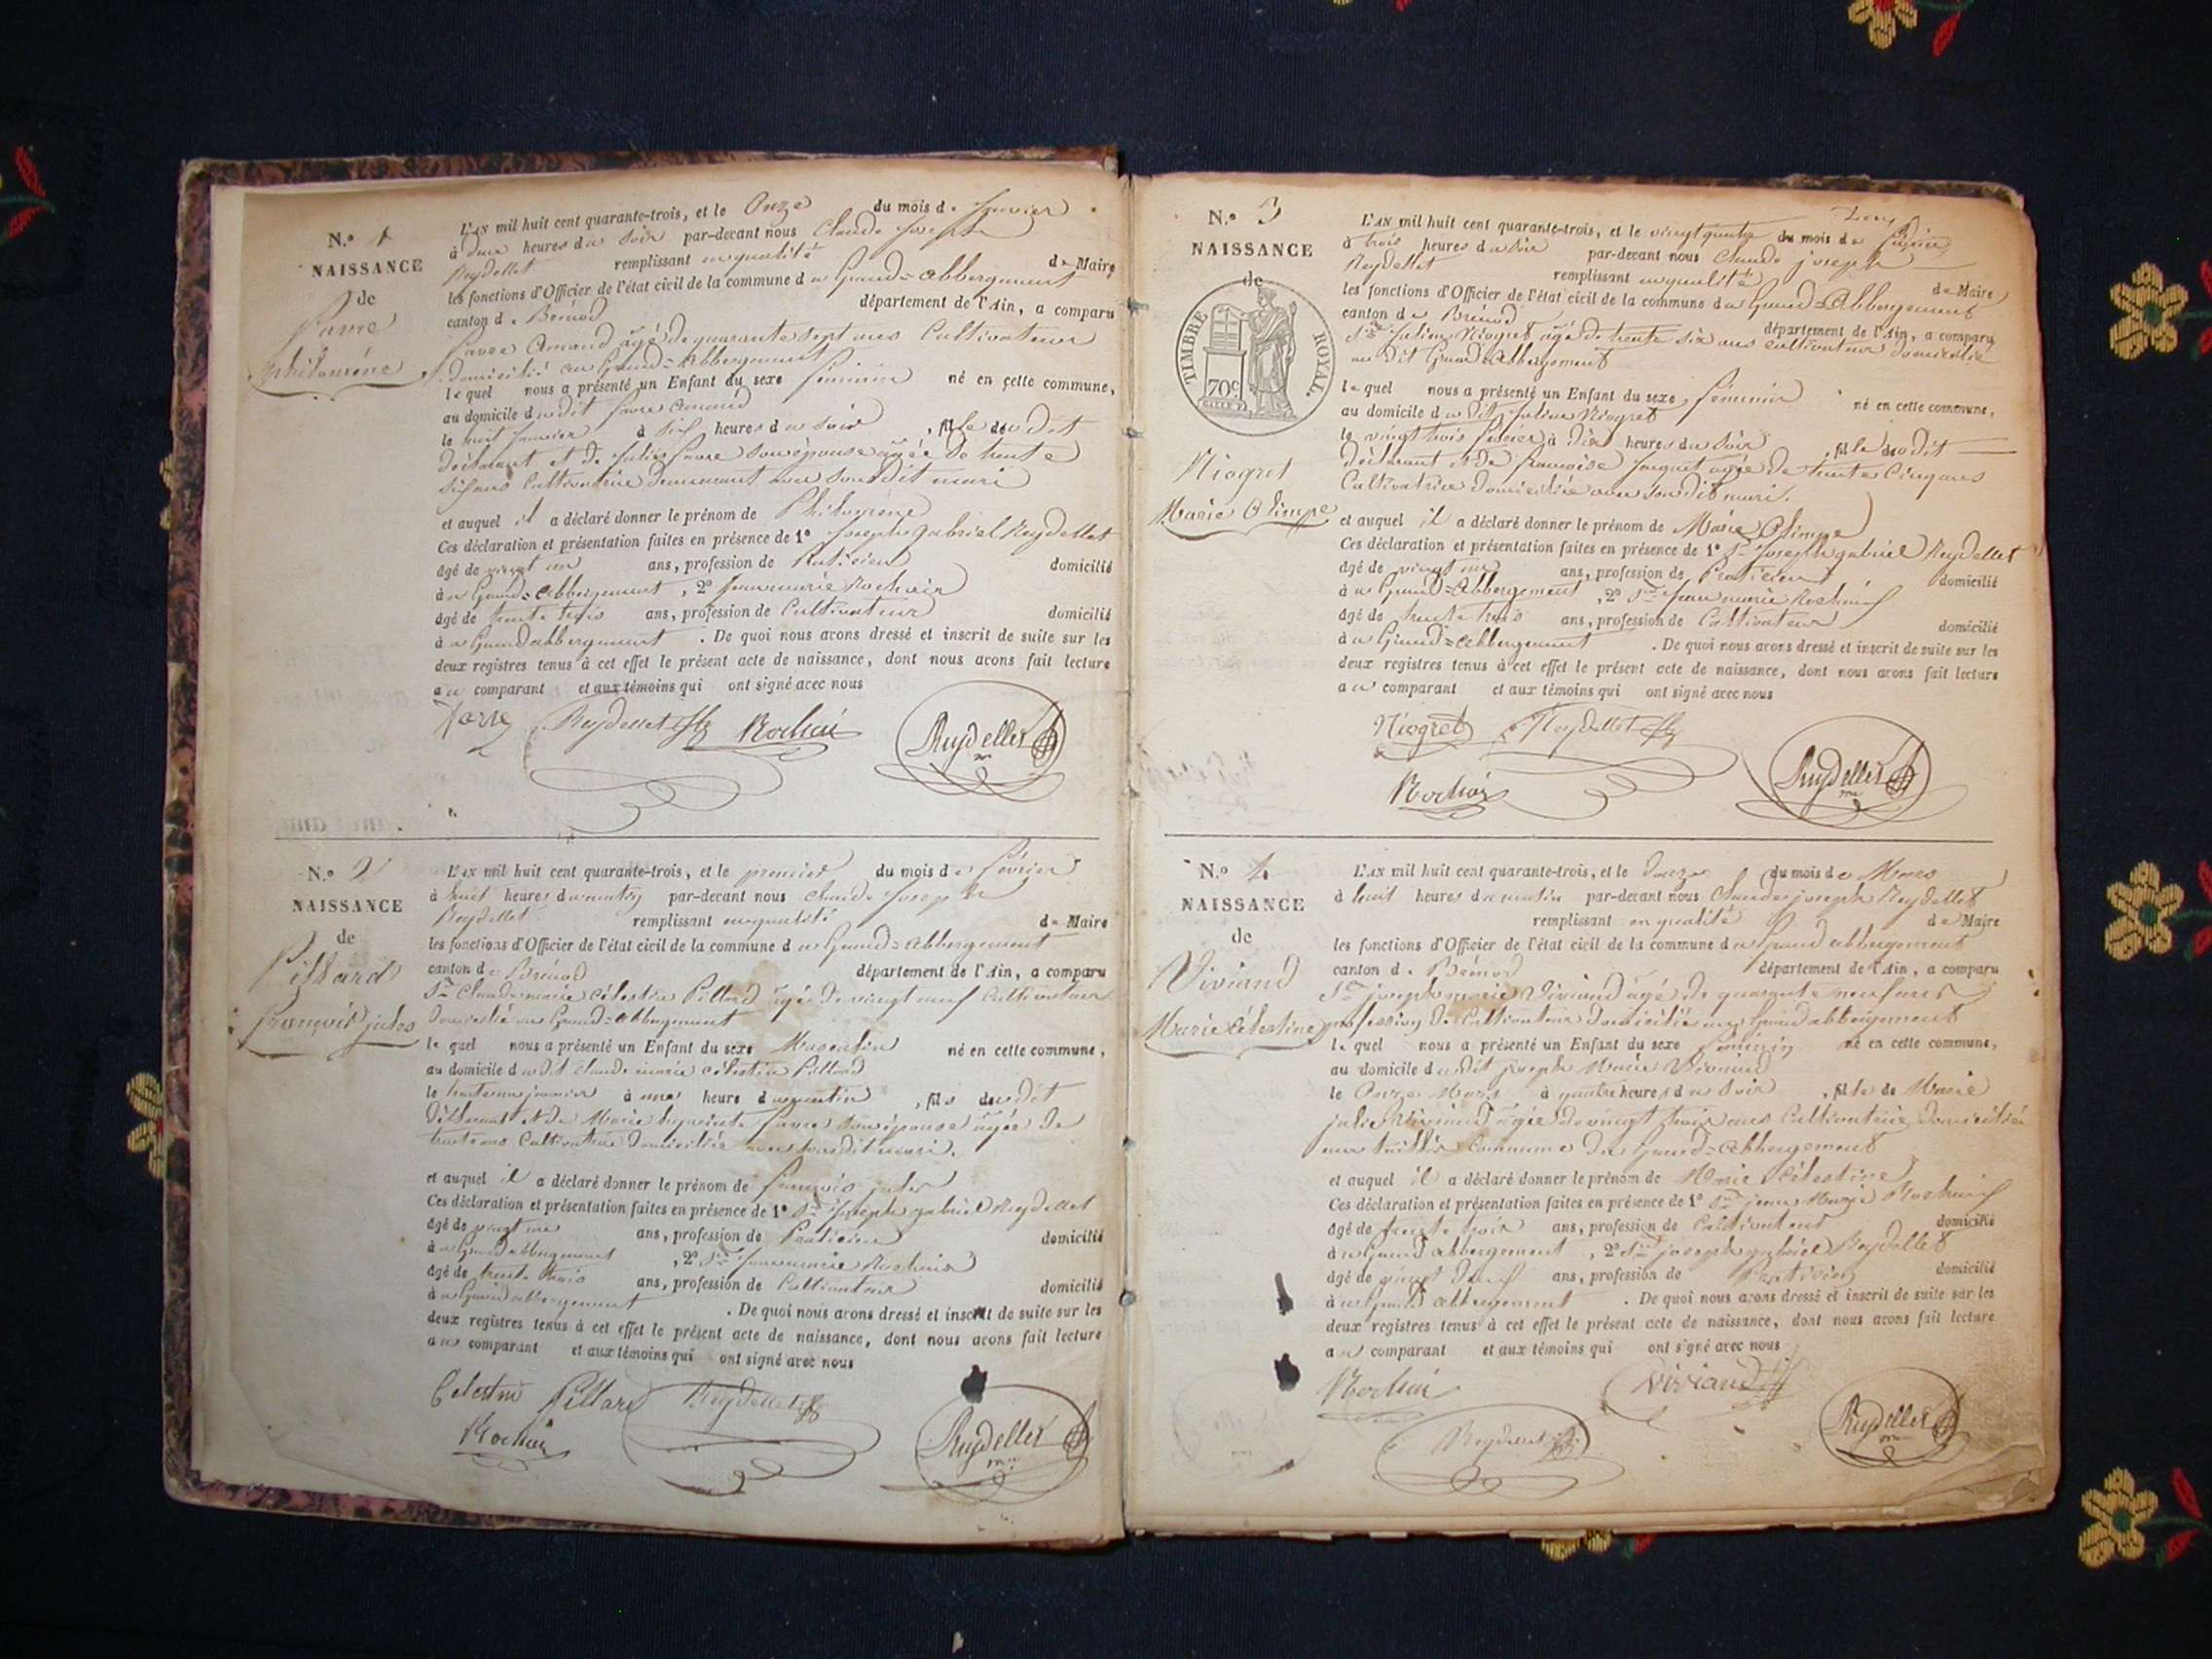 N.º 1
NAISSANCE
de
Favre
philomène
L'AN mil huit cent quarante-trois, et le Onze du mois de Janvier
à deux heures du Soir par-devant nous Claude Joseph
Reydellet remplissant en qualité de Maire
les fonctions d'Officier de l'état civil de la commune du Grand=Abbergement
canton de Brénod département de l'Ain, a comparu
favre Amand âgé de quarante sept ans Cultivateur
domicilié au Grand=Abbergement
lequel nous a présenté un Enfant du sexe féminin né en cette commune,
au domicile dudit favre Amand
le huit Janvier à six heures du soir, fille du dit
déclarant et de Julie favre son épouse âgée de trente
six ans Cultivatrice demeurant avec son dit mari
et auquel il a déclaré donner le prénom de Philomène
Ces déclaration et présentation faites en présence de 1º Joseph gabriel Reydellet
âgé de vingt un ans, profession de Praticien domicilié
à u Grand=Abbergement, 2º Jean marie Rochaix
âgé de trente trois ans, profession de Cultivateur domicilié
à u Grand abbergement. De quoi nous avons dressé et inscrit de suite sur les
deux registres tenus à cet effet le présent acte de naissance, dont nous avons fait lecture
au comparant et aux témoins qui ont signé avec nous
Favre Reydellet Rochaix Reydellet
N.º 2
NAISSANCE
de
Pillard
françois jules
L'AN mil huit cent quarante-trois, et le premier du mois de Février
à huit heures du matin par-devant nous Claude Joseph
Reydellet remplissant en qualité de Maire
les fonctions d'Officier de l'état civil de la commune du Grand=Abbergement
canton de Brénod département de l'Ain, a comparu
Sr Claude marie Célestin Pillard âgé de vingt neuf Cultivateur
domicilié au Grand=Abbergement
lequel nous a présenté un Enfant du sexe Masculin né en cette commune,
au domicile dudit Claude marie célestin Pillard
le trente un janvier à une heure du matin, fils du dit
déclarant et de Marie hyacinte favre son épouse âgée de
trente ans Cultivatrice domiciliée avec son dit mari.
et auquel il a déclaré donner le prénom de françois jules
Ces déclaration et présentation faites en présence de 1º Sr Joseph gabriel Reydellet
âgé de vingt un ans, profession de Praticien domicilié
à u Grand abbergement, 2º Sr Jean marie Rochaix
âgé de trente trois ans, profession de Cultivateur domicilié
à u Grand abbergement. De quoi nous avons dressé et inscrit de suite sur les
deux registres tenus à cet effet le présent acte de naissance, dont nous avons fait lecture
au comparant et aux témoins qui ont signé avec nous
Celestin Pillard Reydellet
Rochaix Reydellet
N.º 3
NAISSANCE
de
TIMBRE ROYAL.
70c
Niogret
Marie Olimpe
L'AN mil huit cent quarante-trois, et le vingt quatre du mois de février
à trois heures du soir par-devant nous Claude joseph
Reydellet remplissant en qualité de Maire
les fonctions d'Officier de l'état civil de la commune du Grand=Abbergement
canton de Brénod département de l'Ain, a comparu
Sr Julien Niogret âgé de trente six ans cultivateur domicilié
au dit Grand=Abbergement
lequel nous a présenté un Enfant du sexe féminin né en cette commune,
au domicile du dit Julien Niogret
le vingt trois février à dix heures du soir, fille du dit
déclarant et de françoise Jarguet agée de trente Cinq ans
Cultivatrice domiciliée avec son dit mari.
et auquel il a déclaré donner le prénom de Marie Olimpe
Ces déclaration et présentation faites en présence de 1º Sr Joseph gabriel Reydellet
âgé de vingt un ans, profession de Praticien domicilié
à u Grand=Abbergement, 2º Sr Jean marie Rochaix
âgé de trente trois ans, profession de Cultivateur domicilié
à u Grand=Abbergement. De quoi nous avons dressé et inscrit de suite sur les
deux registres tenus à cet effet le présent acte de naissance, dont nous avons fait lecture
au comparant et aux témoins qui ont signé avec nous
Niogret Reydellet
Rochaix Reydellet
N.º 4
NAISSANCE
de
Viviand
Marie Célestine
L'AN mil huit cent quarante-trois, et le douze du mois de Mars
à huit heures du matin par-devant nous Claude joseph Reydellet
remplissant en qualité de Maire
les fonctions d'Officier de l'état civil de la commune du Grand abbergement
canton de Brénod département de l'Ain, a comparu
Sr joseph marie Viviand âgé de quarante neuf ans
profession de Cultivateur domicilié au Grand abbergement
lequel nous a présenté un Enfant du sexe féminin né en cette commune,
au domicile dudit joseph Marie Viviand
le Onze Mars à quatre heures du soir, fille de Marie
julie Viviand agée de vingt trois ans Cultivatrice domiciliée
commune du Grand=Abbergement
et auquel il a déclaré donner le prénom de Marie Célestine
Ces déclaration et présentation faites en présence de 1º Sr jean Marie Rochaix
âgé de trente trois ans, profession de Cultivateur domicilié
à u Grand abbergement, 2º Sr joseph gabriel Reydellet
âgé de vingt deux ans, profession de Praticien domicilié
à u Grand abbergement. De quoi nous avons dressé et inscrit de suite sur les
deux registres tenus à cet effet le présent acte de naissance, dont nous avons fait lecture
au comparant et aux témoins qui ont signé avec nous
Rochaix Viviand
Reydellet Reydellet